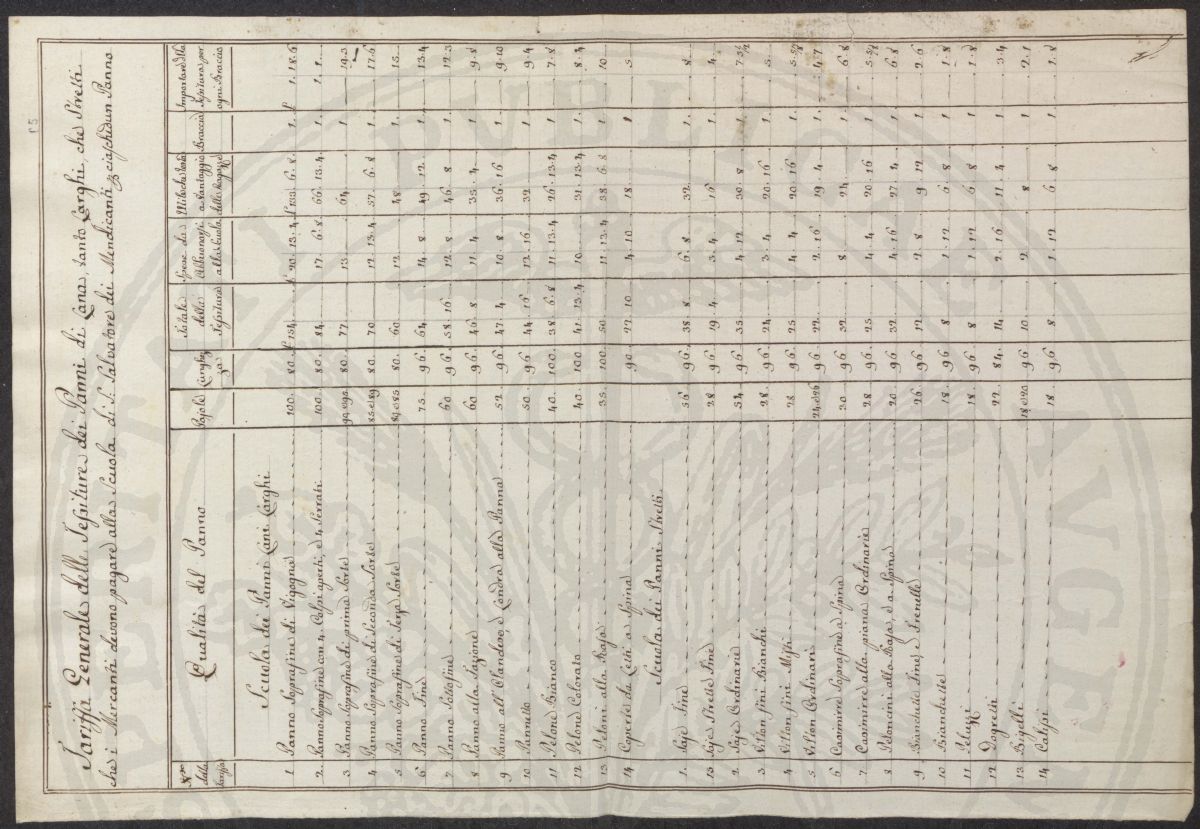 Tariffa Generale delle Tessiture dei Panni di Lana, tanto Larghi, che Stretti
che i Mercanti devono pagare alla Scuola di S. Salvatore dei Mendicanti p ciaschidun Panno
Nro della Tariffa Qualità del Panno Pajole Larghezza Totale della Tessitura Spese da Abbuonarsi alla Scuola a vantaggio delle Ragazze Braccia Importare della Tessitura per ogni Braccio
Scuola dei Panni Lani Larghi
1 Panno Soprafine di Vigogna 100. 80. £ 154 £ 20. 13. 4 £ 133. 6. 8. 1. £ 1. 18. 6
2. Panno Soprafine con 4. Colpi aperti, e 4 Serrati 100. 80. 84. 17. 6. 8 66. 13. 4. 1. 1. 1.
3 Panno Soprafine di prima Sorte 94 e 95 80. 77 13. 64 1 19. 3
4 Panno Soprafine di Seconda Sorte 85 e 89 80. 70 12. 13. 4 57. 6. 8 1. 17. 6
5 Panno Soprafine di Terza Sorte 84 e 85 80. 60 12. 48 1. 15.
6 Panno Fine 75. 96. 64 14. 8 49. 12. 1. 13. 4
7. Panno Sottofine 60 96. 58. 16 12. 8 46. 8 1. 12. 3
8 Panno alla Fazione 60 96. 46. 8 11. 4 35. 4 1. 9. 8
9 Panno all'Olandese, e Londra alla Panna 52 96. 47. 4 10. 8 36. 16 1 9. 10
10 Pannetto 50. 96 44. 16 12. 16 32 1. 9. 4
11 Pelone Bianco 40. 100 38. 6. 8 11. 13. 4 26. 13. 4 1. 7. 8
12 Pelone Colorato 40. 100 41. 13. 4 10. 31. 13. 4 1. 8. 4
13. Peloni alla Rasa 35. 100. 50 11. 13. 4 38. 6. 8 1 10
14 da Letti a Spina 90. 22. 10 4. 10 18 1 5
Scuola dei Panni Stretti
1. Saje Fine 56 96. 38. 8 6. 8 32 1. 8
13. Saje Strette Fine 28 96. 19. 4 3. 4 16 1. 4
2. Saje Ordinarie 54 96. 35 4. 12 30. 8 1. 7. 3½
3 Villon fini Bianchi 28. 96. 24 3. 4 20. 16 1. 5.
4 Villon fini Misti 28 96. 25 4. 4 20. 16 1.
5 Villon Ordinari 24 e 26 96. 22 2. 16 19. 4 1. 4. 7
6 Casimirre Soprafine a Spina 30 96 32 8 24 1 6. 8
7 Casimirre alla piana Ordinarie 28 96. 25 4. 4 20. 16 1.
8 Peloncini alla Rasa, e a Spina 20 96. 32 4. 16 27. 4 1. 6. 8
9 Bianchette Fine, e Frenelle 26 96. 12 2. 8 9. 12 1. 2. 6
10 Bianchette 18. 96 8 1. 12 6. 8 1 1. 8
11 Peluzzi 18 96. 8 1. 12 6. 8 1. 1. 8
12 Dogretti 22. 84. 14 2. 16 11. 4 1. 3. 4
13 Bigelli 18 e 20 96 10 2 8 1 2. 1
14 Calissi 18 96 8 1. 12 6. 8 1 1. 8